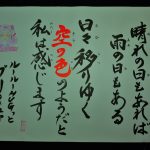 晴れの日もあれば
雨の日もある
日々移りゆく
空の色のようだと
私は感じます